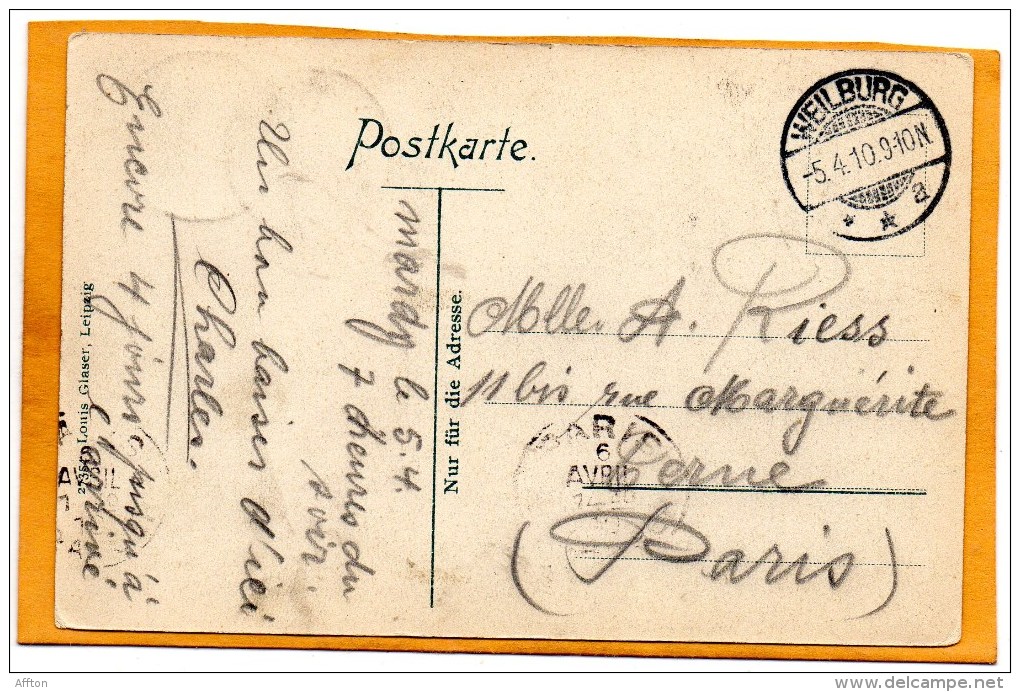 Postkarte.
WEILBURG
-5.4.10.9-10N
* * a
mardy le 5.4.
7 heures du
soir.
Un bon baiser d'ici
Charles.
Encore 4 jours jusqu'à
Nur für die Adresse.
Mlle. A. Riess
11 bis rue Marguérite
Terne
(Paris)
PARIS
6
AVRIL
Louis Glaser, Leipzig
AVRIL
Affton
www.delcampe.net